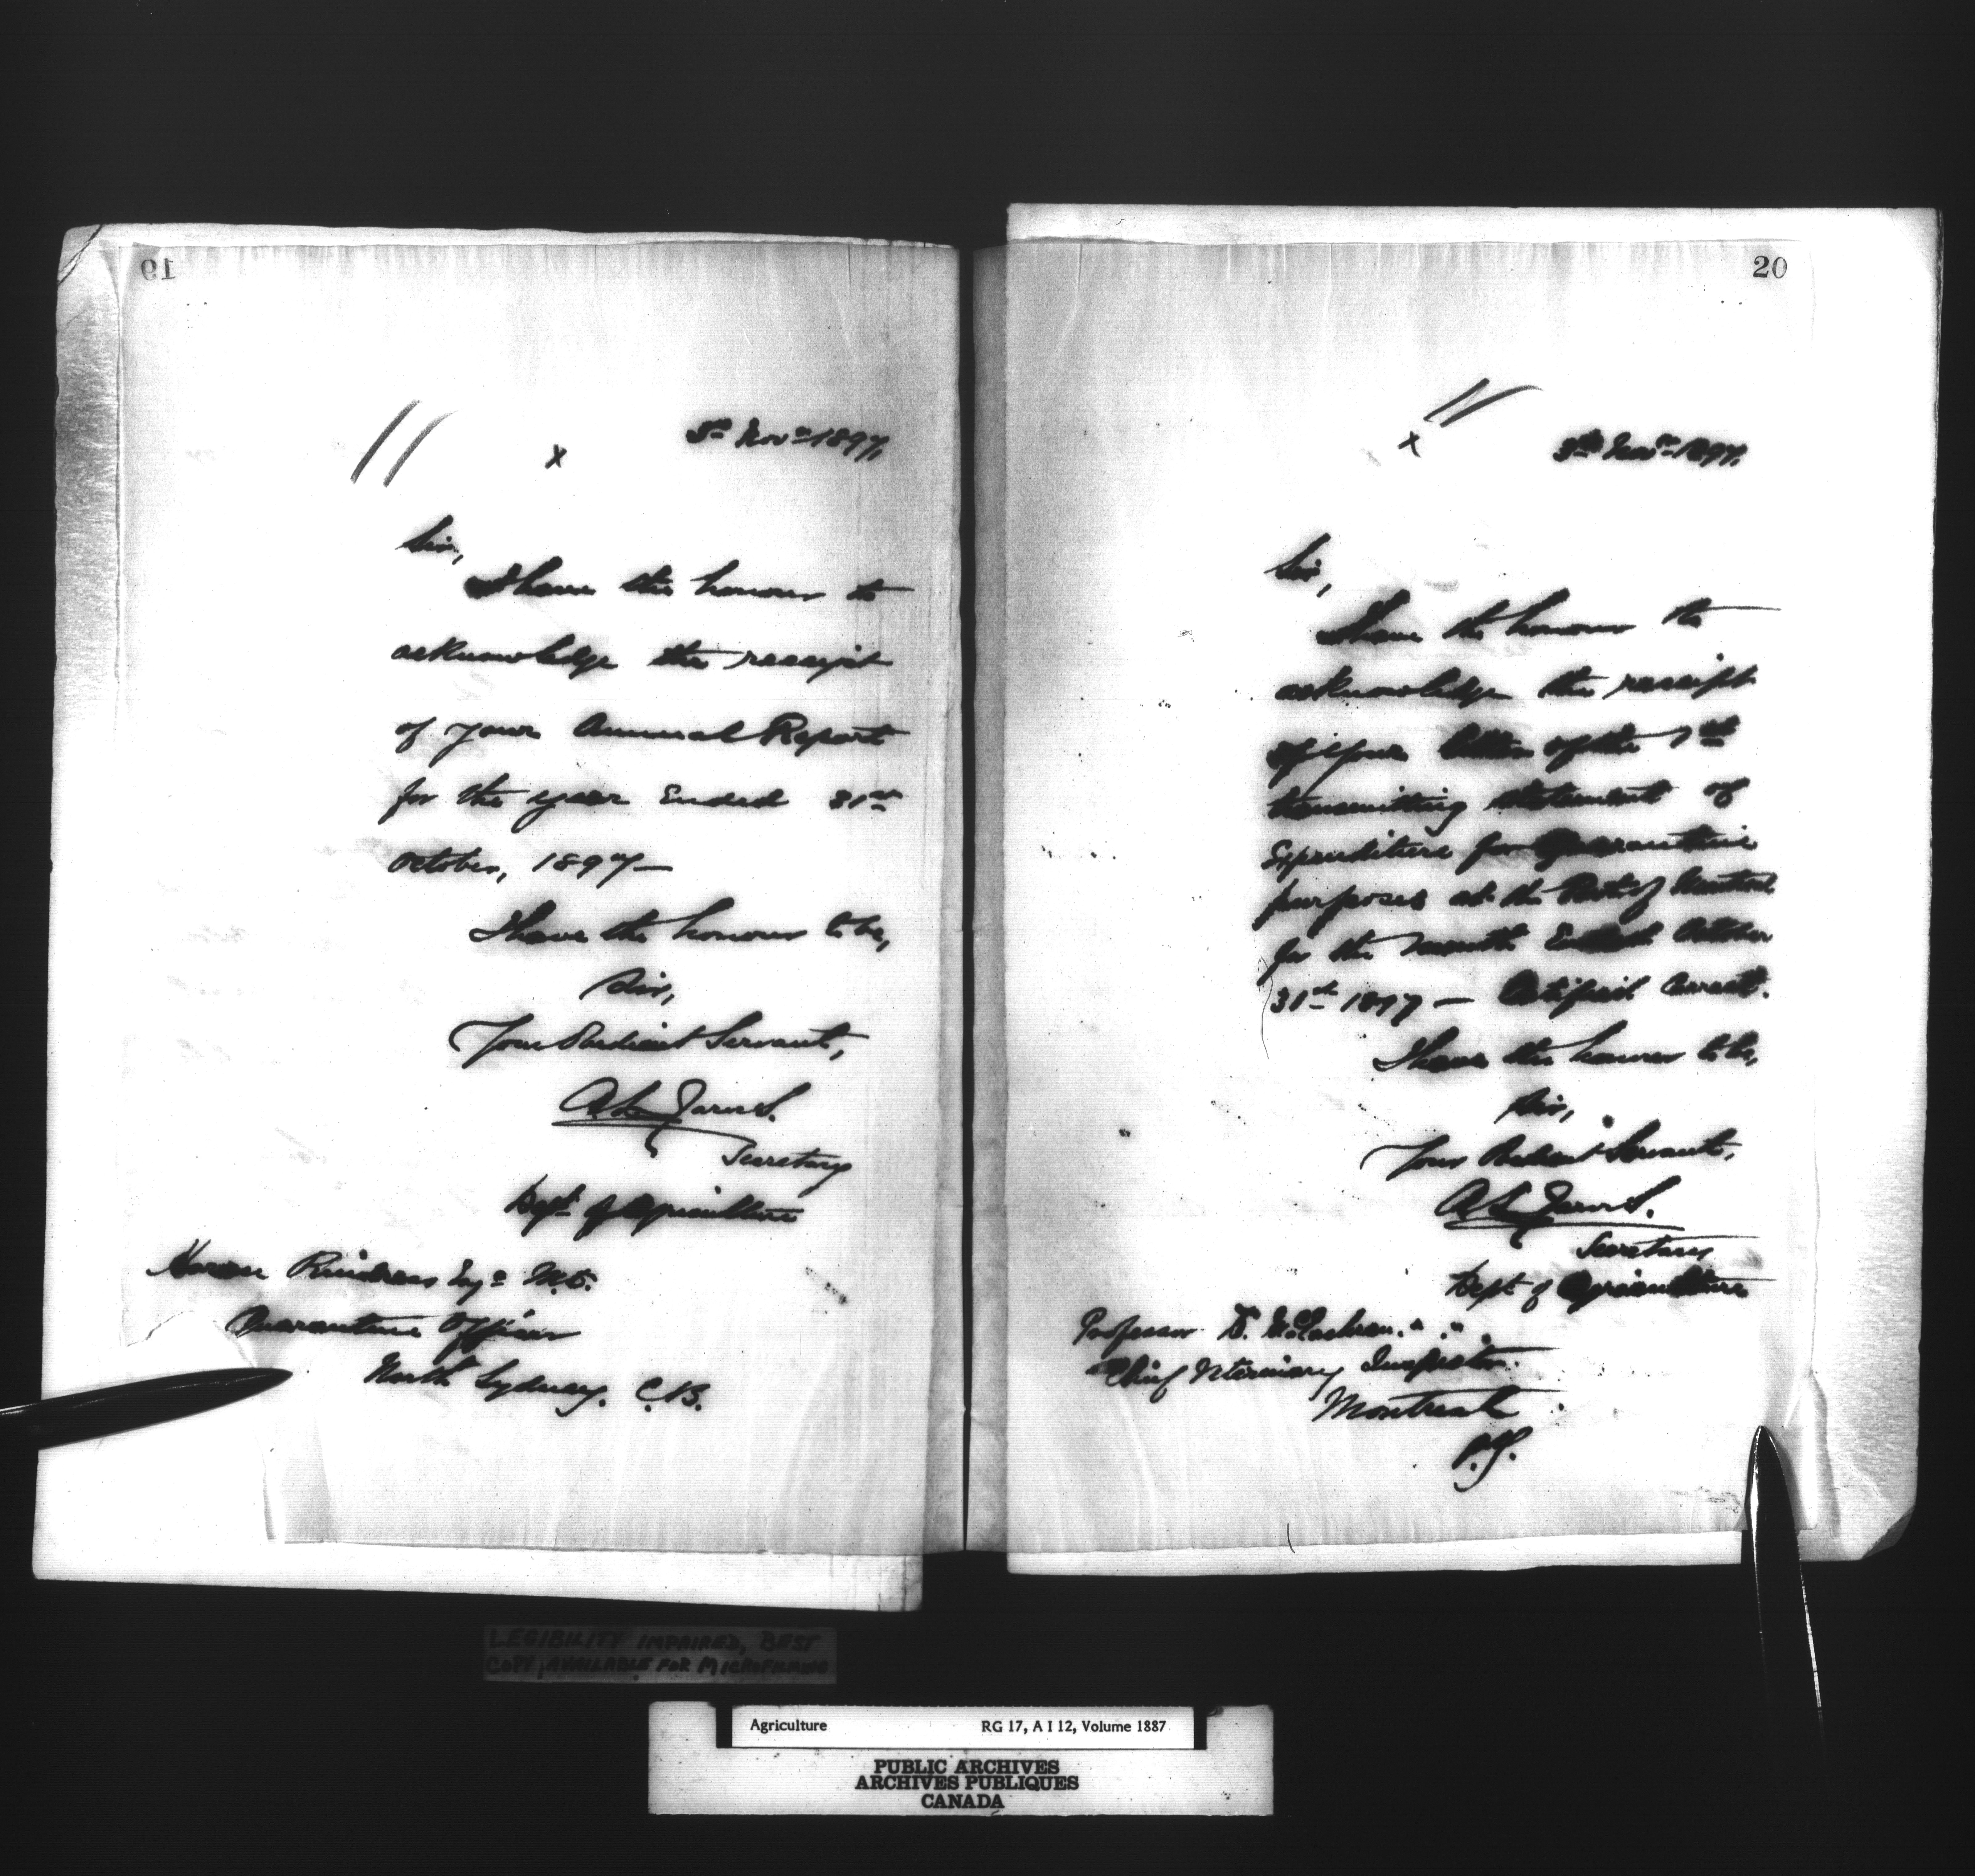 19
x
3rd Nov. 1897.
Sir,
I have the honour to
acknowledge the receipt
of your Annual Report
for the year Ended 31st
October, 1897—
I have the honour to be,
Sir,
Your Obedient Servant,
A L Jarvis.
Secretary
Dept. of Agriculture
Esqe. M.D.
Quarantine Officer
North Sydney. C.B.
20
x
Nov. 1897.
Sir,
I have the honour to
acknowledge the receipt
of your letter of the
transmitting statement of
Expenditure for Quarantine
purposes at the Port of Montreal
for the month Ended October
31st 1897 — Certified Correct.
I have the honour to be,
Sir,
Your Obedient Servant,
A L Jarvis.
Secretary
Dept. of Agriculture
Professor D. McEachran.
Chief Veterinary Inspector.
Montreal
P.Q.
LEGIBILITY IMPAIRED, BEST
COPY AVAILABLE FOR MICROFILMING
Agriculture RG 17, A I 12, Volume 1887
PUBLIC ARCHIVES
ARCHIVES PUBLIQUES
CANADA